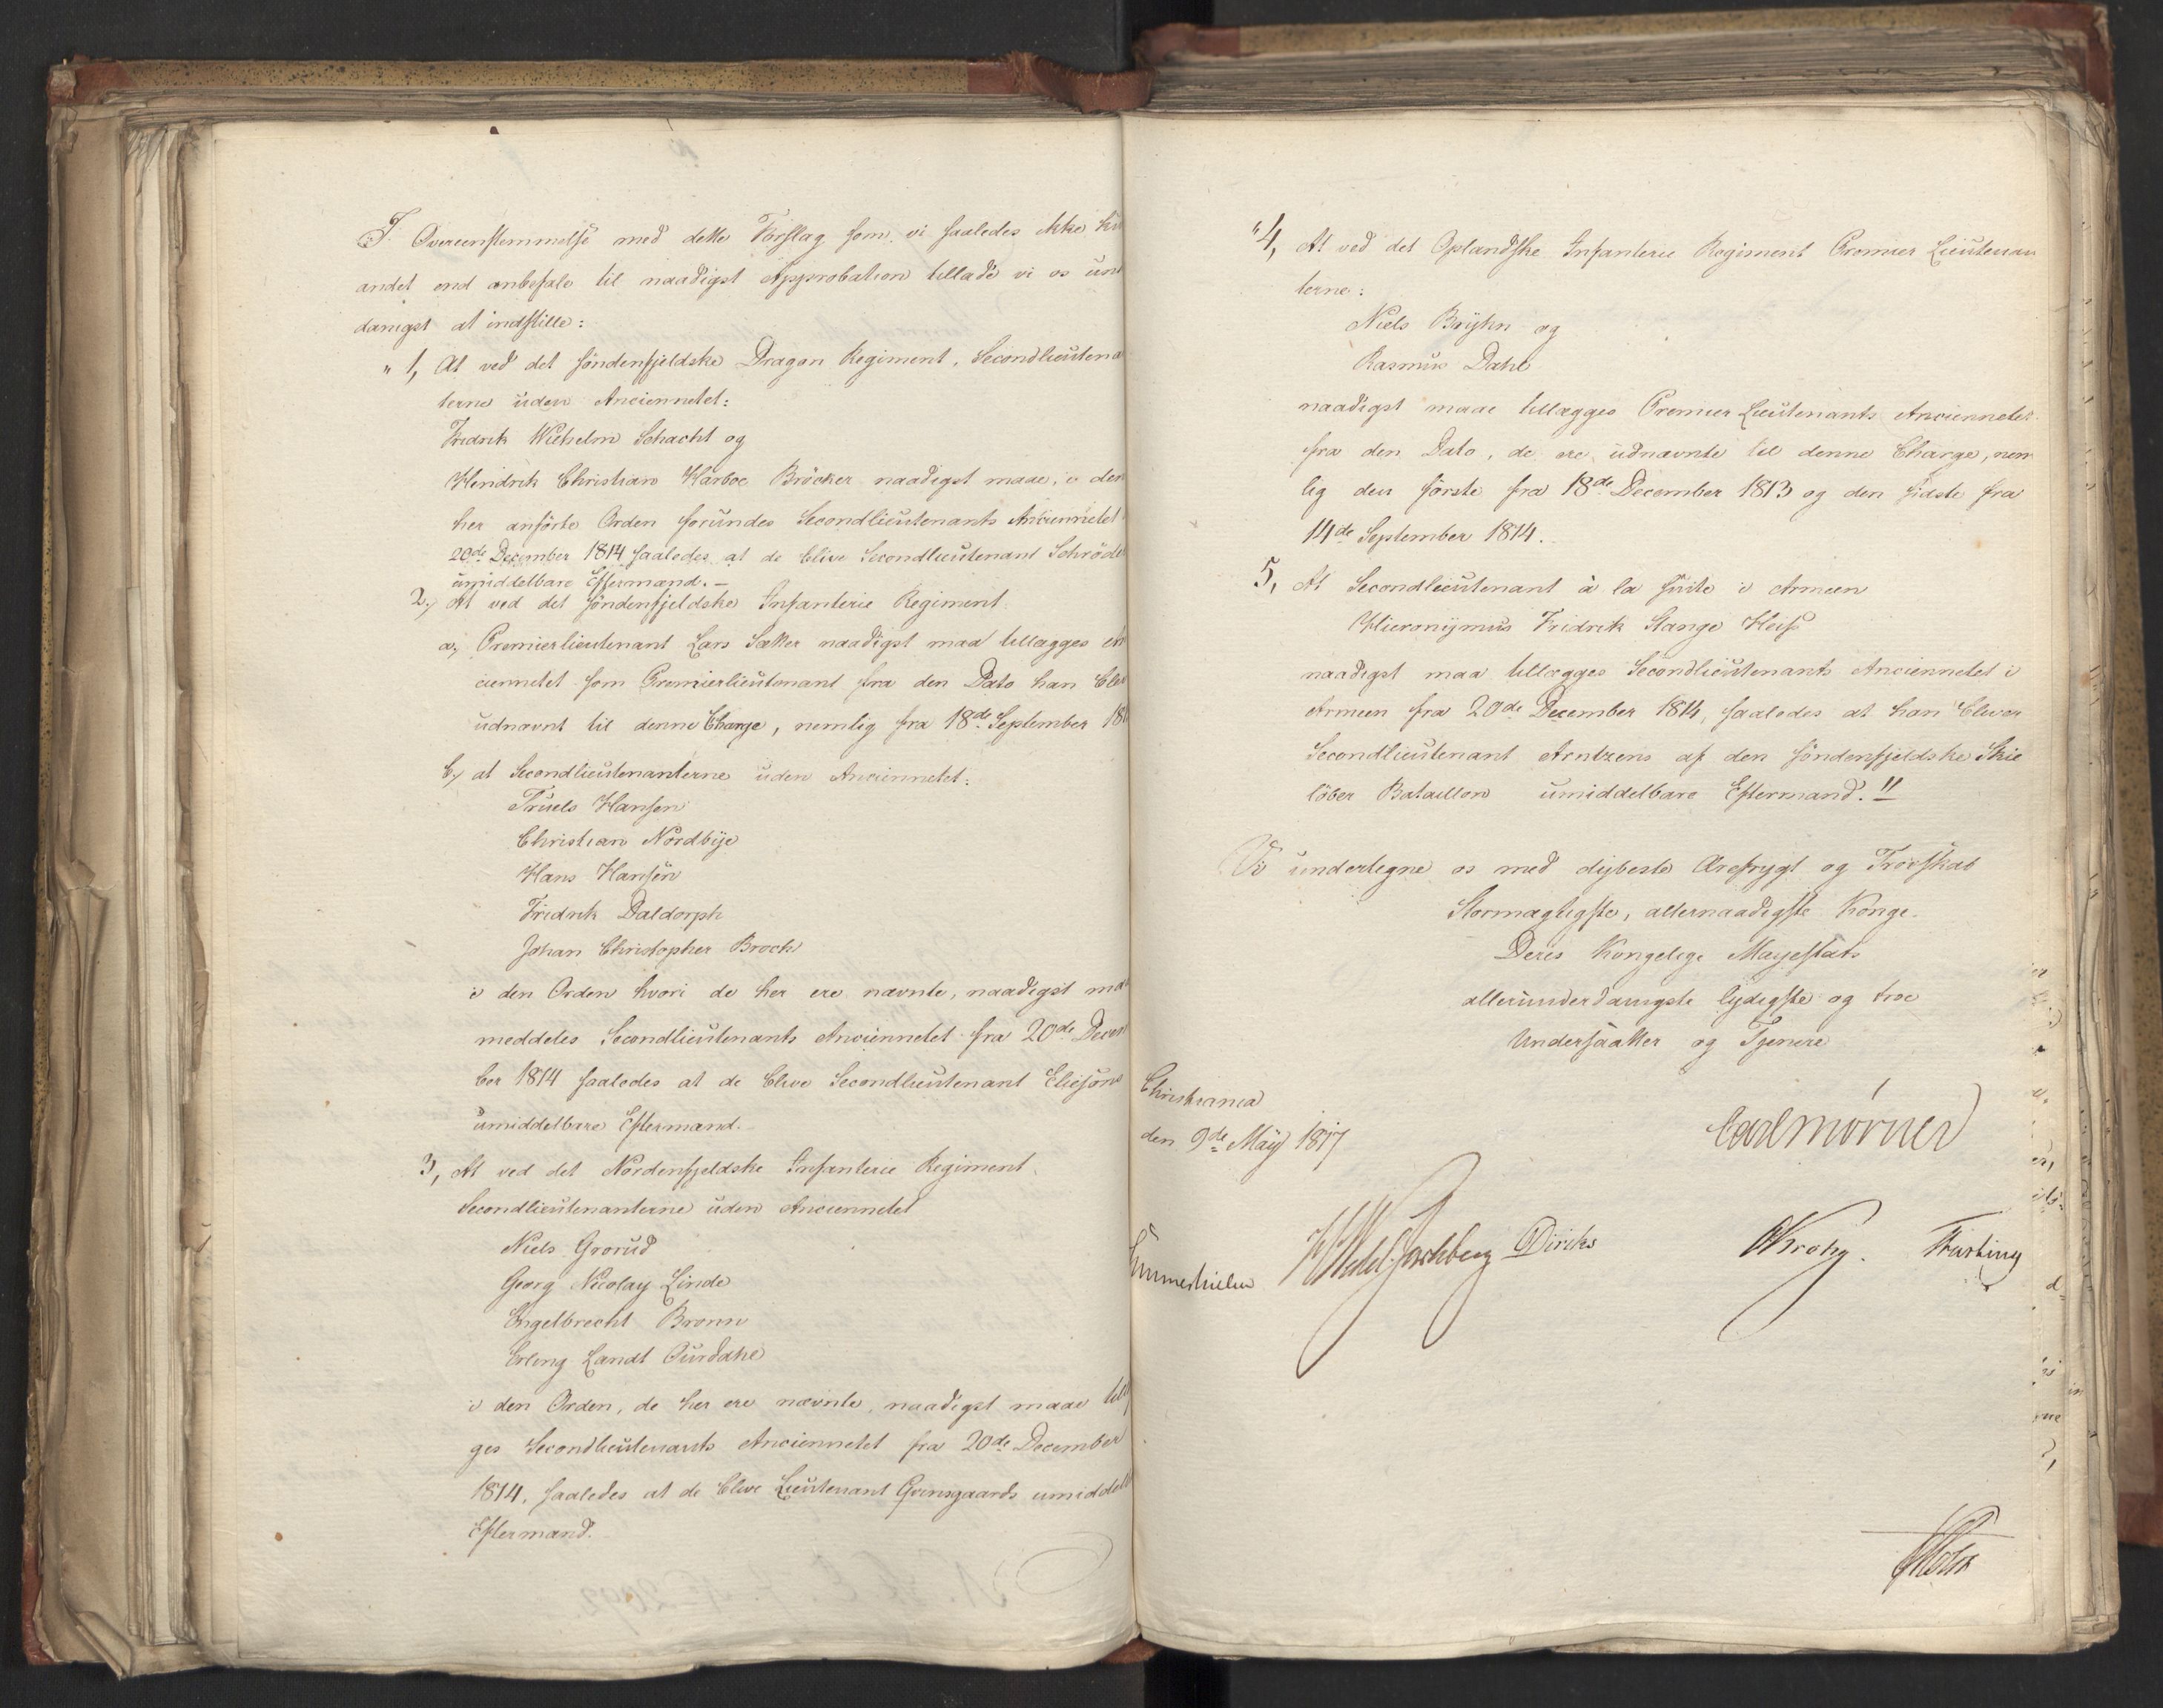 I Overeenstemmelse med dette Forslag som vi saaledes ikke
andet end anbefale til naadigst Approbation tillade vi os un
danigst at indstille:
" 1, At ved det søndenfjeldske Dragon Regiment, Secondlieutena
terne uden Anciennetet:
Fredrik Wilhelm Schacht og
Hendrik Christian Harboe Bröcker naadigst maae, i den
her anførte Orden forundes Secondlieutenants Anciennetet
20de December 1814 saaledes at de blive Secondlieutenant Schröde
umiddelbare Eftermænd. –
2, At ved det søndenfjeldske Infanterie Regiment
a, Premierlieutenant Lars Sæther naadigst maa tillægges An
ciennetet som Premierlieutenant fra den Dato han blev
udnævnt til denne Charge, nemlig fra 18de September 18
b, at Secondlieutenanterne uden Anciennetet:
Truels Hansen
Christian Nordbye
Hans Hansen
Fredrik Daldorph
Johan Christopher Broch
i den Orden hvori de her ere nævnte, naadigst maa
meddeles Secondlieutenants Anciennetet fra 20de Decem
ber 1814 saaledes at de blive Secondlieutenant Eliesons
umiddelbare Eftermænd.
3, At ved det Nordenfjeldske Infanterie Regiment
Secondlieutenanterne uden Anciennetet
Niels Grorud
Georg Nicolay Linde
Engelbrecht Bronn
Erling Landt
i den Orden, de her ere nævnte, naadigst maae till
ges Secondlieutenants Anciennetet fra 20de December
1814, saaledes at de blive Lieutenant Qvinsgaards umiddelb
Eftermænd.
" 4, At ved det Oplandske Infanterie Regiment Premier Lieutenan
terne:
Niels Bryhn og
Rasmus Dahl
naadigst maae tillægges Premier Lieutenants Anciennetet
fra den Dato, de ere udnævnte til denne Charge, nem
lig den første fra 18de December 1813 og den sidste fra
14de September 1814.
5, At Secondlieutenant à la suite i Armeen
Hieronymus Fridrik Stange Heiss
naadigst maa tillægges Secondlieutenants Anciennetet i
Armeen fra 20de December 1814, saaledes at han bliver
Secondlieutenant Arntzens af den søndenfjeldske Skie
løber Bataillon umiddelbare Eftermand."
Vi undertegne os med dybeste Ærefrygt og Troeskab
Stormægtigste, allernaadigste Konge.
Deres Kongelige Mayestæts
allerunderdanigste lydigste og troe
Undersaatter og Tjenere
Christiania
den 9de May 1817
Carl Mörner
Sommerhielm HWedel Jarlsberg Diriks Krohg. Fasting
Holst